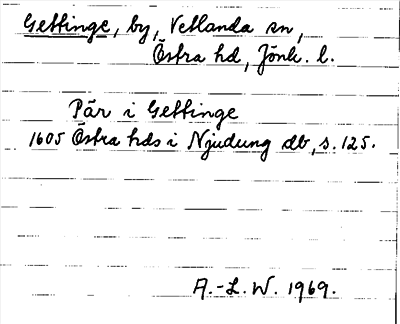 Gettinge, by, Vetlanda sn,
Östra hd, Jönk. l.
Pär i Gettinge
1605 Östra hds i Njudung db, s. 125.
A.-L. W. 1969.